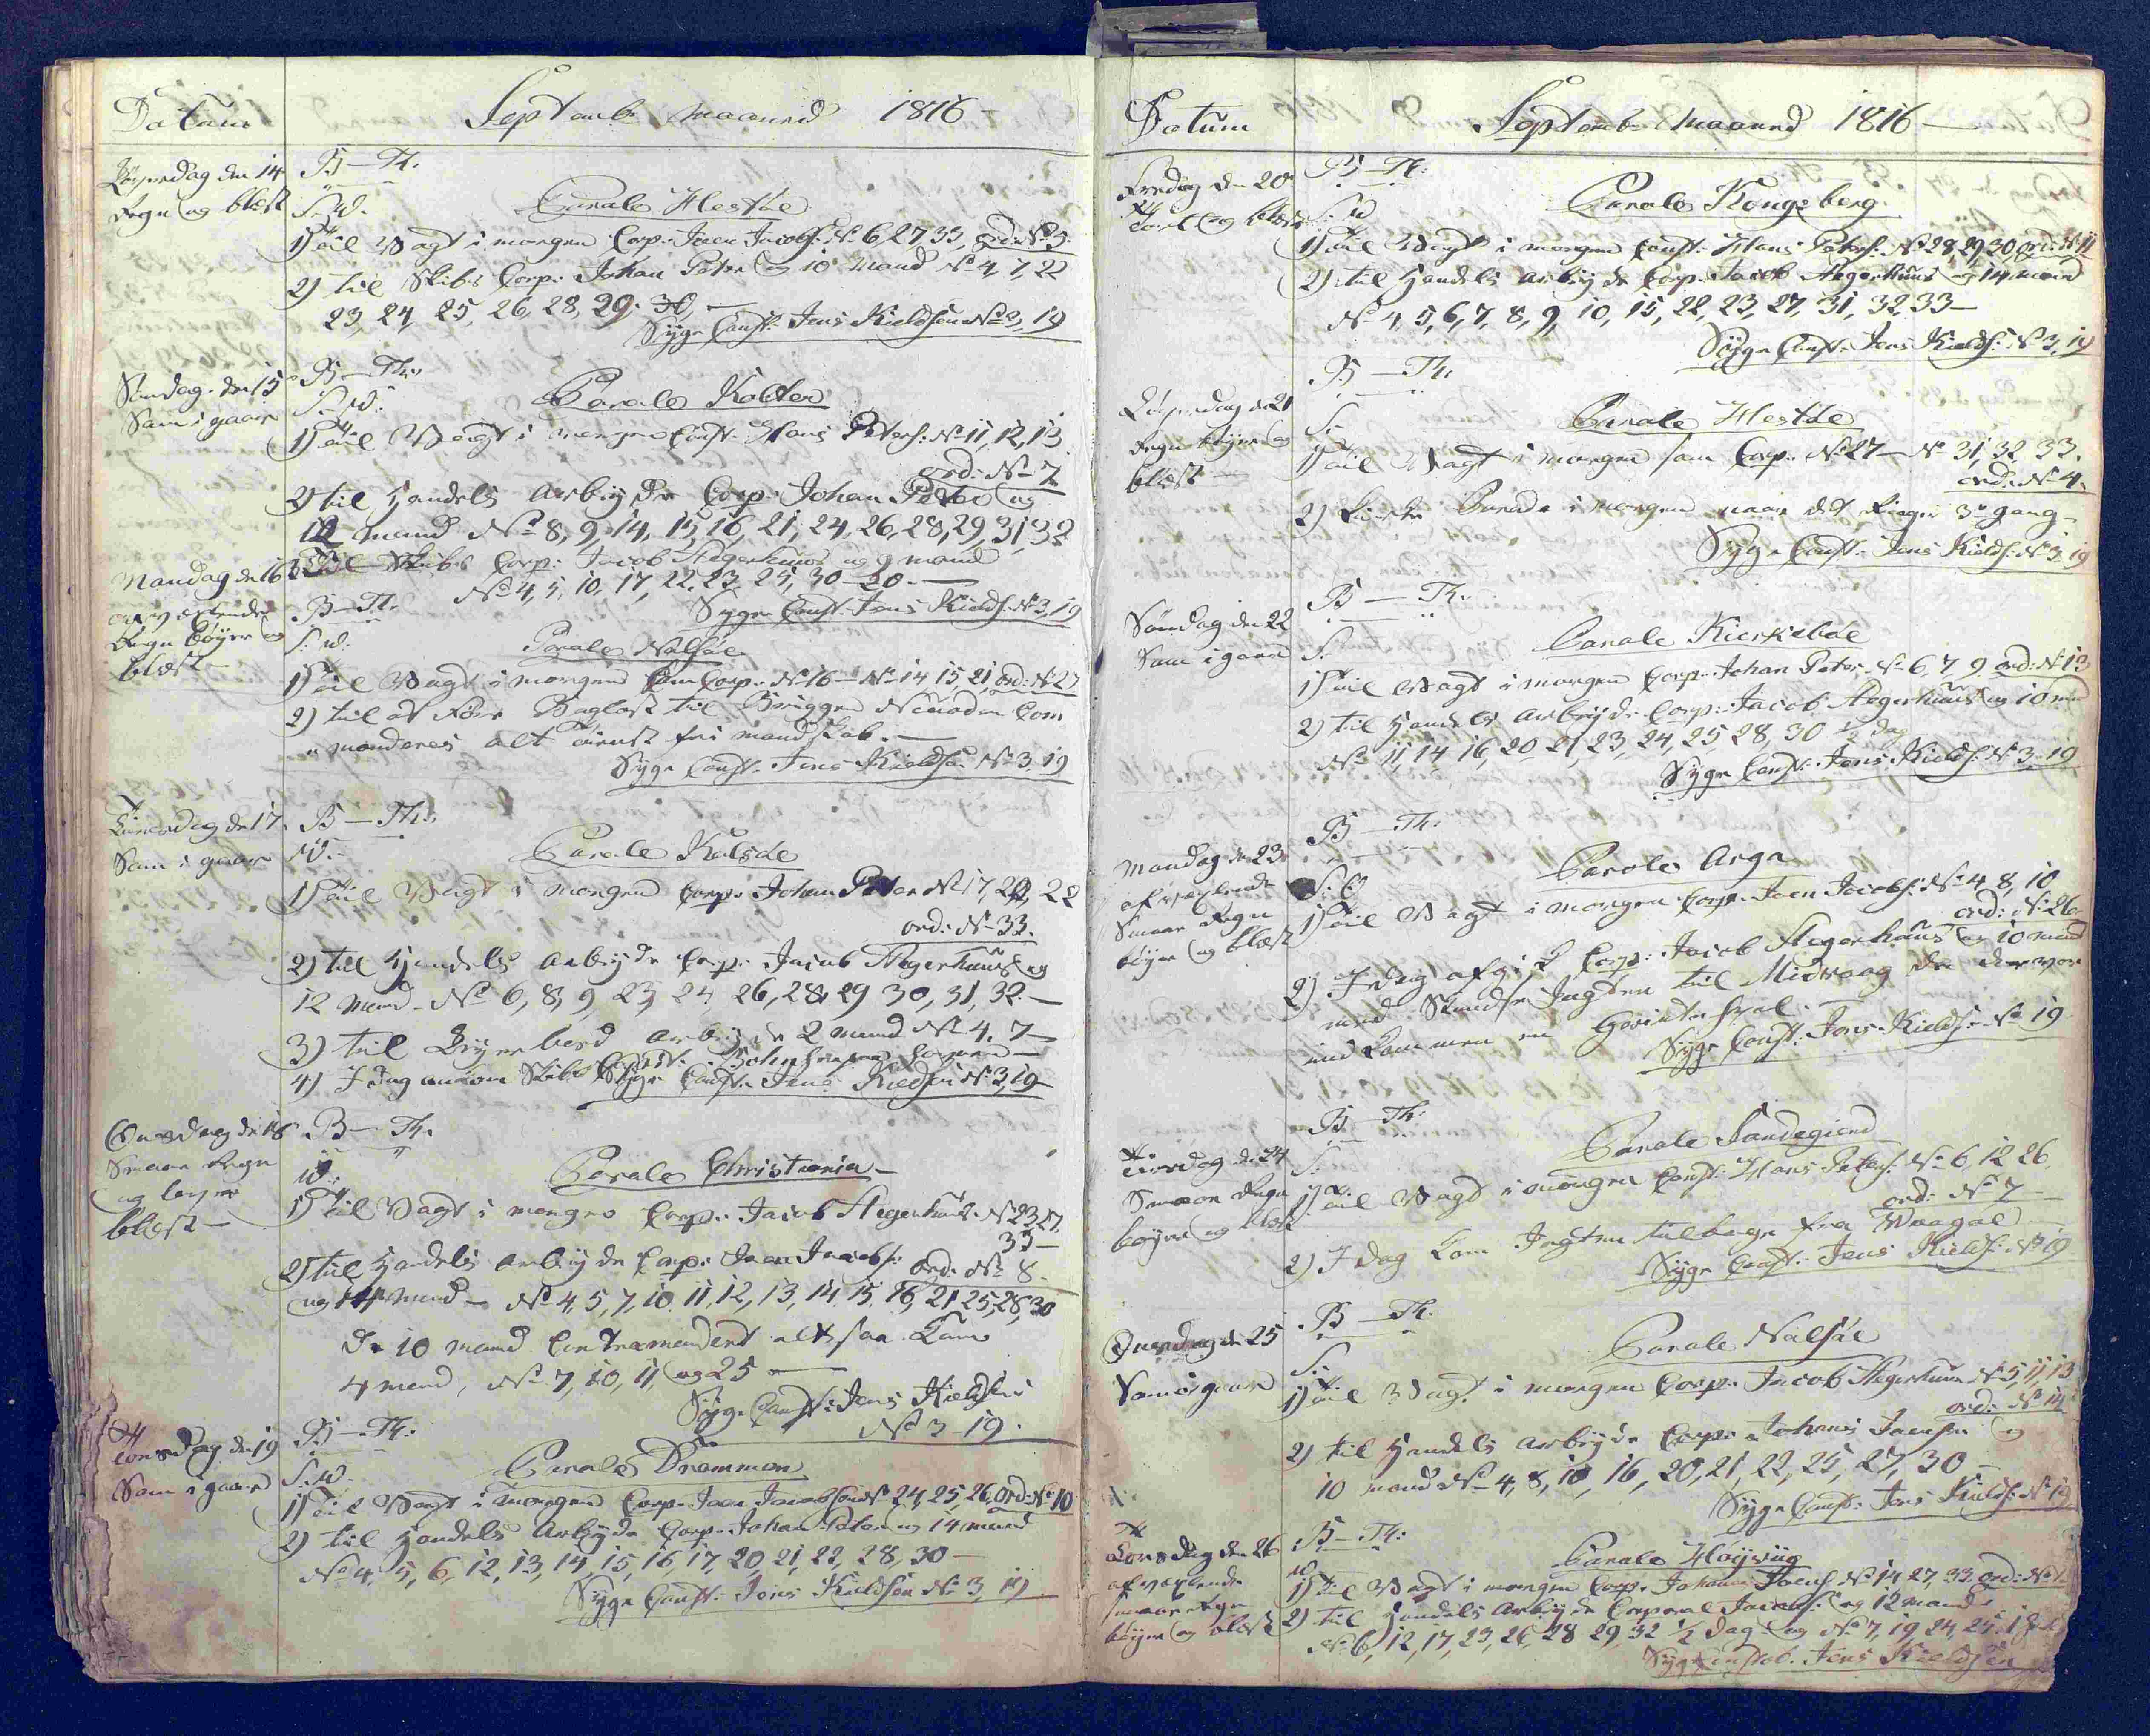 Datum
Septemb. Maaned 1816
Løverdag den 14
Regn og blæst
B — Th.
S. W.
Parole Nestöe
1) Til Vagt i morgen Corp: Joen Jacobs: No 6 27 33, ord: No 5.
2) til Skibs Corp: Johan Peter og 10 Mand No 4, 7, 22
23, 24, 25, 26, 28, 29, 30, —
Syge Const: Jens Kieldsen No 3, 19
Søndag den 15
Som i gaar
B — Th.
S. W.
Parole Kolter
1) Til Vagt i morgen Const: Hans Peters: No 11, 12, 13
ord: No 7
2) til Handels Arbeyde Corp: Johan Peter og
12 Mand No 8, 9, 14, 15, 16, 21, 24, 26, 28, 29, 31, 32
3) Til Skibs Corp: Jacob Aegerhuus og 9 mand
No 4, 5, 10, 17, 22, 23, 25, 30 20 —
Syge Const: Jens Kields: No 3, 19
Mandag den 16
Regn bøyer og
blæst —
B — Th.
S. W.
Parole Nolsöe
1) Til Vagt i morgen som Corp: No 16 — No 14 15 21, ord: No 27
2) til at føre Baglast til Briggen Comm-
manderes alt tienst frie mandskab. —
Syge Const: Jens Kieldsen No 3, 19
Tiirsdag den 17
Som i gaar
B — Th.
W.
Parole Kalsöe
1) Til Vagt i morgen Corp: Johan Peter No 17, 20, 22
ord: No 33.
2) til Handels Arbeyde Corp: Jacob Aegerhuus og
12 Mand — No 6, 8, 9, 23, 24, 26, 28, 29 30, 31, 32. —
3) til arbeyde 2 mand No 4, 7 —
4) I dag ankom Skibet
Syge Const: Jens Kieldsen No 3, 19 —
Onsdag den 18
Smaae Regn
og
blæst —
B — Th.
W.
Parole Christiania —
1) Til Vagt i morgen Corp: Jacob Aegerhuus No 23 27,
33 —
2) til Handels Arbeyde Corp: Joen Jacobs:
ord: No 8
og 14 mand — No 4, 5, 7, 10, 11, 12, 13, 14, 15, 16, 21 25, 28, 30
de 10 mand Contramandert altsaa kom
4 mand, No 7, 10, 11, og 25 —
Syge Const: Jens Kieldsen
No 3 19.
Torsdag den 19
Som i gaar
B — Th.
S. W.
Parole Drammen
1) Til Vagt i morgen Corp: Joen Jacobsen No 24, 25, 26, ord: No 10
2) til Handels Arbeyde Corp: Johan Peter og 14 mand
No 4, 5, 6, 12, 13, 14, 15, 16, 17, 20, 21, 22, 28, 30 —
Syge Const: Jens Kieldsen No 3, 19
Datum
Septemb. Maaned 1816 —
Fredag den 20
og blæst
B — Th.
S. W
Parole Kongsberg
1) Til Vagt i morgen Const: Hans Peters: No 28, 29, 30, ord: No 11
2) til Handels Arbeyde Corp: Jacob Aegerhuus og 14 mand
No 4, 5, 6, 7, 8, 9, 10, 15, 22, 23, 27, 31, 32, 33 —
Syge Const: Jens Kields: No 3, 19
Løverdag den 21
Regn bøyer og
blæst —
B — Th.
S.
Parole Nestöe
1) Til Vagt i morgen som Corp: No 27 — No 31, 32 33.
ord: No 4.
2) Kirke Parade i morgen naar det Ringer 3de gang —
Syge Const: Jens Kields: No 3, 19
Søndag den 22
Som i gaar
B — Th.
S.
Parole Kierkeböe
1) Til Vagt i morgen Corp: Johan Peter No 6, 7 9. ord: No 13
2) til Handels Arbeyde Corp: Jacob Aegerhuus og 10 md
No 11, 14 16, 20 21, 23, 24, 25, 28, 30 ½ dag
Syge Const: Jens Kields: No 3 19
Mandag den 23
afvexlende
Smaae Regn
bøyer og blæst
B — Th.
S. O
Parole Arge
1) Til Vagt i morgen Corp: Joen Jacobs: No 4 8, 10
ord: No 26
2) I dag afgik Corp: Jacob Aegerhuus og 10 mand
med Slands Jagten til Midvaag der der var
ind kommen en Grinde hval.
Syge Const: Jens Kieldse No 19
Tiirsdag den 24
Smaae Regn
bøyer og blæst
B — Th.
S.
Parole Sandegierd
1) Til Vagt i morgen Const: Hans Peters: No 6, 12 26,
ord: No 7 —
2) I dag kom Jagten tilbage fra Waagöe
Syge Const: Jens Kields: No 19
Onsdag den 25
Som i gaar
B — Th.
S.
Parole Nolsöe
1) Til Vagt i morgen Corp: Jacob Aegerhuus No 5, 11, 13
ord: No 14
2) til Handels Arbeyde Corp: Johans Joensen og
10 mand No 4, 8, 10, 16, 20, 21, 22, 25, 27, 30 —
Syge Const: Jens Kields: No 19
Torsdag den 26
afvexlende
smaae regn
bøyer og blæst
B — Th.
W
Parole Høyviig
1) Til Vagt i morgen Corp: Johans Joens: No 14 27, 33. ord: No
2) til Handels Arbeyde Corporal Jacobs: og 12 mand
No 6, 12, 17, 23, 26, 28 29, 32 ½ dag og No 7, 19 24, 25, 1
Syge Constab. Jens Kieldsen